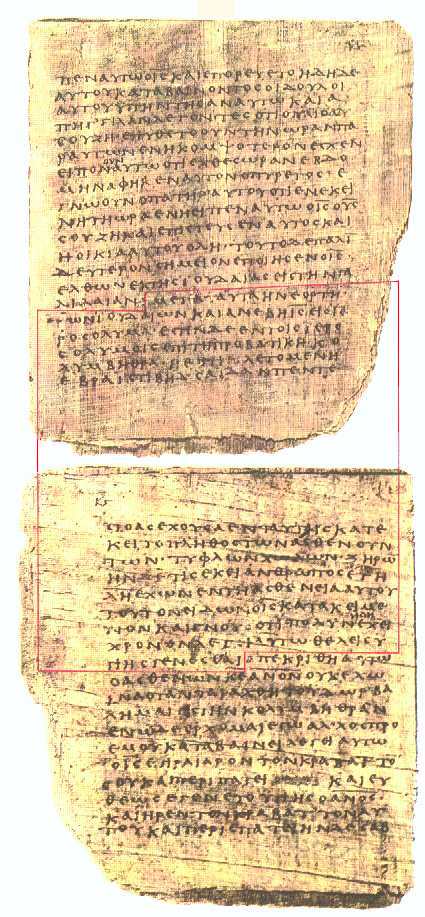 ΠΕΝΑΥΤΩΟΙΣΚΑΙΕΠΟΡΕΥΕΤΟΗΔΗΔΕ
ΑΥΤΟΥΚΑΤΑΒΑΙΝΟΝΤΟΣΟΙΔΟΥΛΟΙ
ΑΥΤΟΥΥΠΗΝΤΗΣΑΝΑΥΤΩΚΑΙΑ
ΠΗΓΓΙΛΑΝΛΕΓΟΝΤΕΣΟΤΙΟΥΙΟΣΑΥ
ΣΟΥΖΗΕΠΥΘΕΤΟΟΥΝΤΗΝΩΡΑΝΠΑ
ΡΑΥΤΩΝΕΝΗΚΟΜΨΟΤΕΡΟΝΕΣΧΕΝ
ΕΙΠΟΝΑΥΤΩΟΤΙΕΧΘΕΣΩΡΑΝΕΒΔΟ
ΜΗΝΑΦΗΚΕΝΑΥΤΟΝΟΠΥΡΕΤΟΣ·Ε
ΓΝΩΟΥΝΟΠΑΤΗΡΑΥΤΟΥΟΤΙΕΝΕΚΕΙ
ΝΗΤΗΩΡΑΕΝΗΕΙΠΕΝΑΥΤΩΙΣΟΥΣ
ΣΟΥΖΗΚΑΙΕΠΙΣΤΕΥΣΕΝΑΥΤΟΣΚΑΙ
ΗΟΙΚΙΑΑΥΤΟΥΟΛΗ·ΤΟΥΤΟΔΕΠΑΛΙ
ΔΕΥΤΕΡΟΝΣΗΜΕΙΟΝΕΠΟΙΗΣΕΝΟΙΣ
ΕΛΘΩΝΕΚΤΗΣΙΟΥΔΑΙΑΣΕΙΣΤΗΝΓΑ
ΛΙΛΑΙΑΝ·ΜΕΤΑΤΑΥΤΑΗΝΕΟΡΤΗ
ΤΩΝΙΟΥΔΑΙΩΝΚΑΙΑΝΕΒΗΙΣΕΙΣΙΕ
ΡΟΣΟΛΥΜΑ·ΕΣΤΙΝΔΕΕΝΤΟΙΣΙΕΡΟ
ΣΟΛΥΜΟΙΣΕΠΙΤΗΠΡΟΒΑΤΙΚΗΚΟ
ΛΥΜΒΗΘΡΑΗΕΠΙΛΕΓΟΜΕΝΗ
ΕΒΡΑΙΣΤΙΒΗΔΣΑΙΔΑΝΠΕΝΤΕ
ΣΤΟΑΣΕΧΟΥΣΑΕΝΤΑΥΤΑΙΣΚΑΤΕ
ΚΕΙΤΟΠΛΗΘΟΣΤΩΝΑΣΘΕΝΟΥΝ
ΤΩΝ·ΤΥΦΛΩΝΧΩΛΩΝΞΗΡΩ
ΗΝΔΕΤΙΣΕΚΕΙΑΝΘΡΩΠΟΣΕΤΗ
ΛΗΕΧΩΝΕΝΤΗΑΣΘΕΝΕΙΑΑΥΤΟΥ
ΤΟΥΤΟΝΕΙΔΩΝΟΙΣΚΑΤΑΚΕΙΜΕ
ΝΟΝΚΑΙΓΝΟΥΣΟΤΙΠΟΛΥΝΕΧΕΙ
ΧΡΟΝΟΝΛΕΓΕΙΑΥΤΩΘΕΛΕΙΣΥ
ΓΙΗΣΓΕΝΕΣΘΑΙΑΠΕΚΡΙΘΗΑΥΤΩ
ΟΑΣΘΕΝΩΝΚΕΑΝΟΝΟΥΚΕΧΩ
ΙΝΑΟΤΑΝΤΑΡΑΧΘΗΤΟΥΔΩΡΒΑ
ΛΗΜΑΙΕΙΣΤΗΝΚΟΛΥΜΒΗΘΡΑΝ
ΕΝΩΔΕΕΡΧΟΜΑΙΕΓΩΑΛΛΟΣΠΡΟ
ΕΜΟΥΚΑΤΑΒΑΙΝΕΙΛΕΓΕΙΑΥΤΩ
ΟΙΣΕΓΕΙΡΑΙΑΡΟΝΤΟΝΚΡΑΒΑΤΤΟ
ΣΟΥΚΑΙΠΕΡΙΠΑΤΕΙΚΑΙΕΥ
ΘΕΩΣΕΓΕΝΕΤΟΥΓΙΗΣΟΑΝΟΣ
ΚΑΙΗΡΕΝΤΟΝΚΡΑΒΑΤΤΟΝΑΥ
ΤΟΥΚΑΙΠΕΡΙΕΠΑΤΕΙΗΝΔΕΣΑΒ